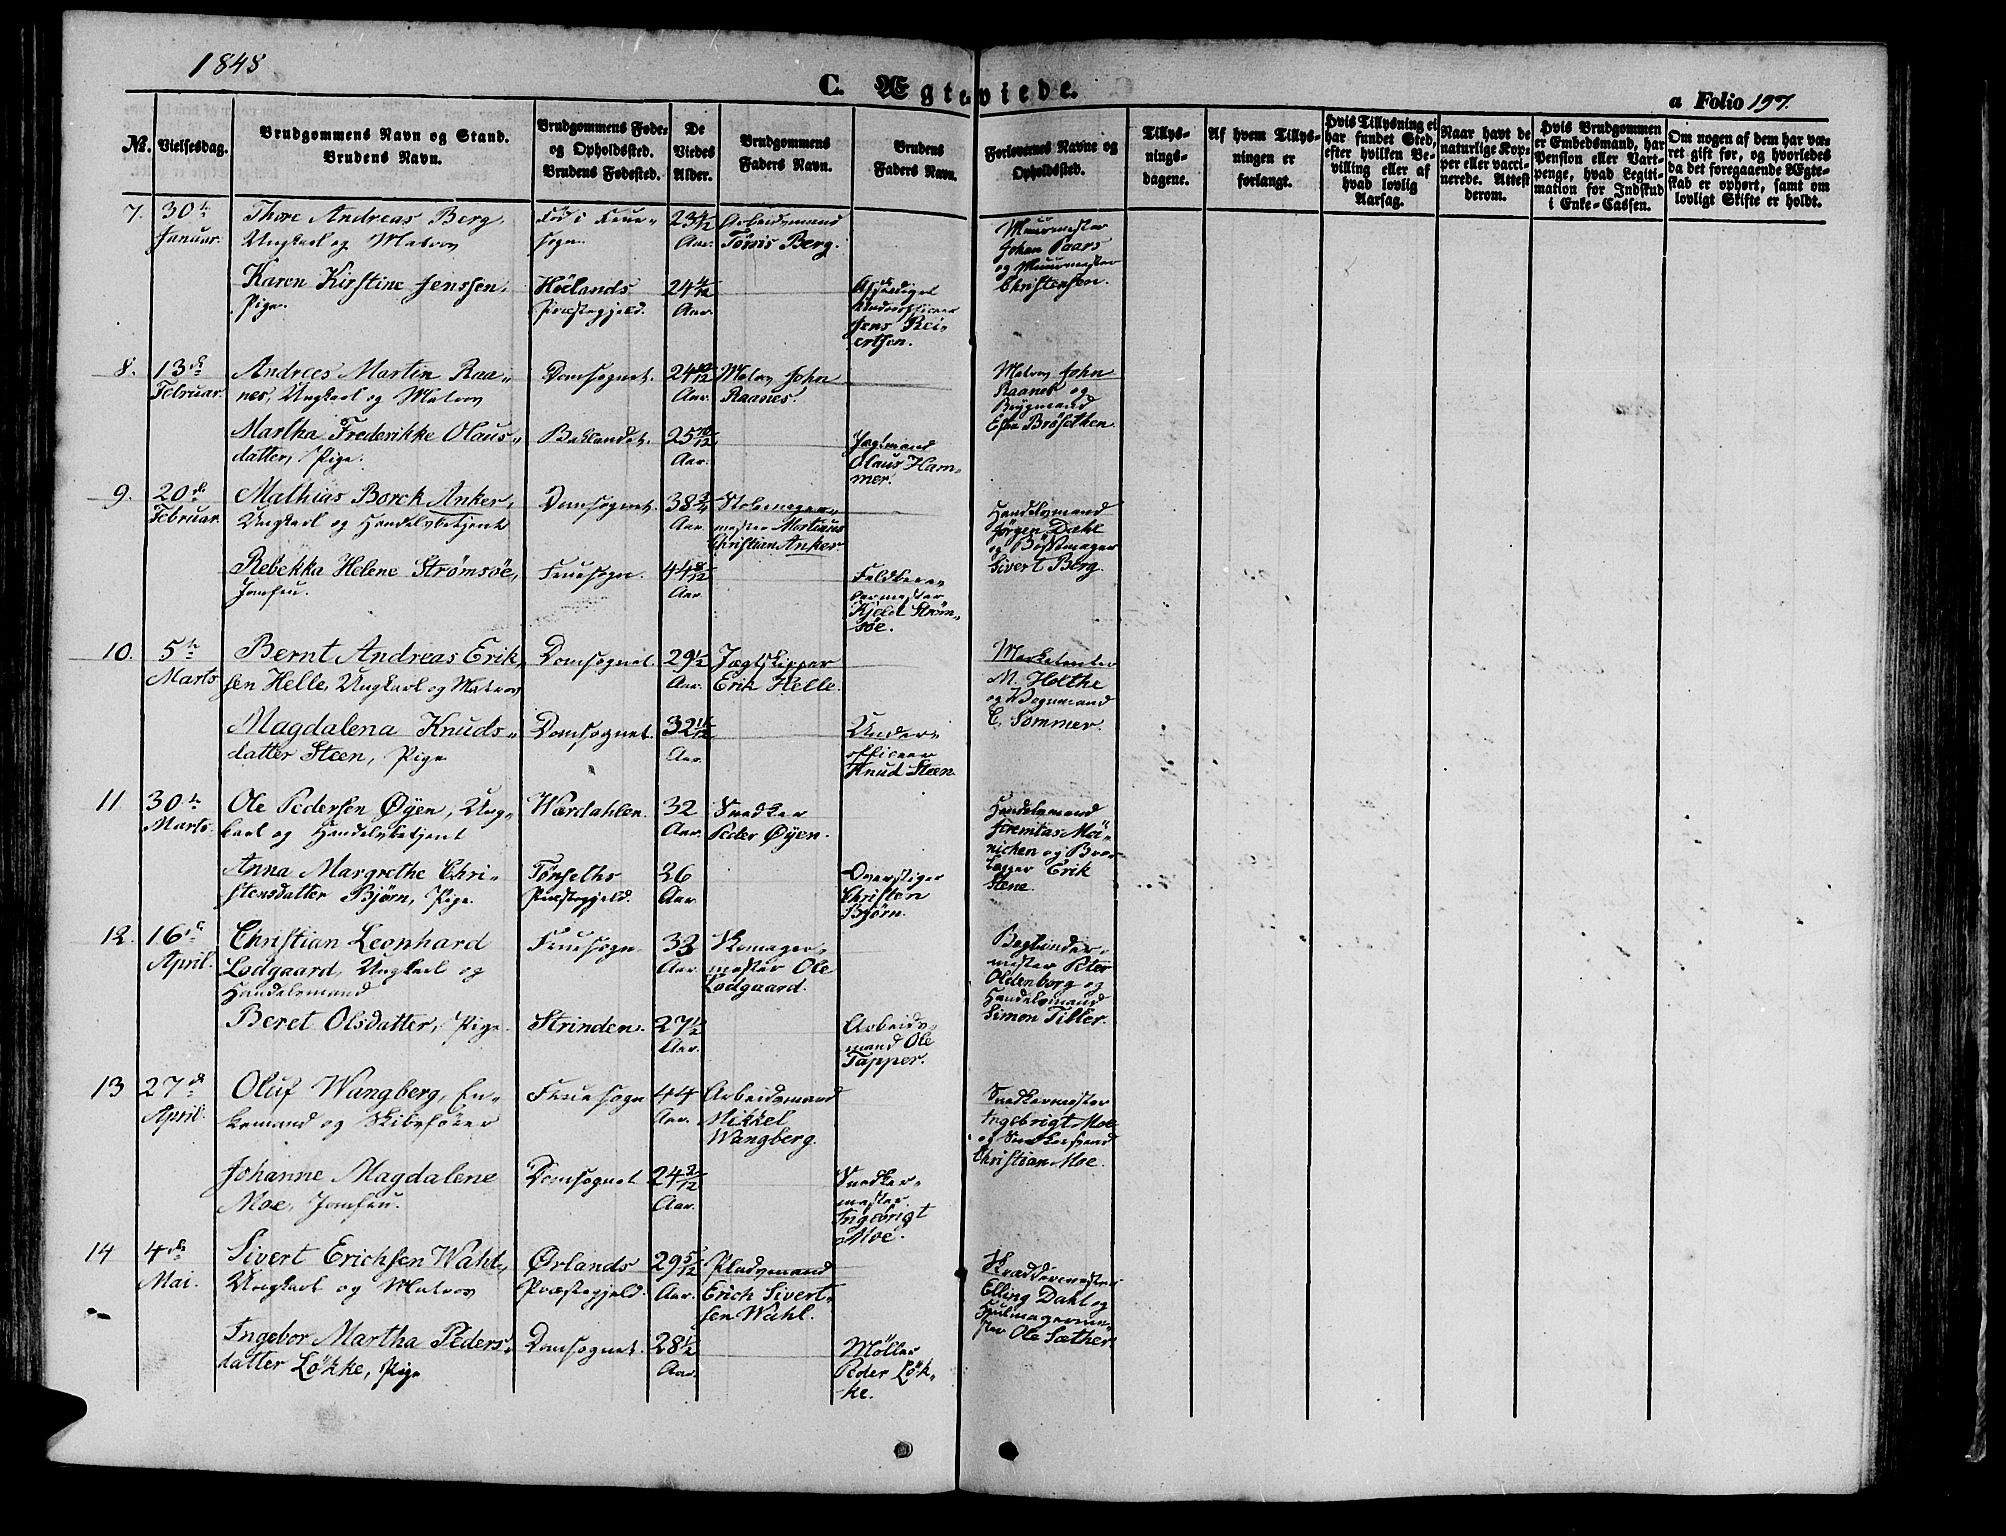 1848
C. Ægteviede.
a Folio 197.
No. Vielsesdag. Brudgommens Navn og Stand. Brudens Navn. Brudgommens Føde- og Opholdssted. Brudens Fødested. De Viedes Alder. Brudgommens Faders Navn. Brudens Faders Navn. Forlovernes Navne og Opholdssted. Tillysnings-dagene. Af hvem Tillysningen er forlangt. Hvis Tillysning ei har fundet Sted, efter hvilken Bevilling eller af hvad lovlig Aarsag. Naar havt de naturlige Kopper eller vaccinerede. Attest derom. Hvis Brudgommen er Embedsmand, har Pension eller Vartpenge, hvad Legitimation for Indskud i Enke-Cassen. Om nogen af dem har været gift før, og hvorledes da det foregaaende Ægteskab er ophørt, samt om lovligt Skifte er holdt.
7. 30te Januar.
Thore Andreas Berg,
Ungkarl og Matros
Fød i Frue-
sogn.
23 4/12
Aar.
Arbeidsmand
Tørris Berg.
Muurmester
Johan Paars
og Muurmester
Christensen.
Karen Kirstine Jenssen,
Pige.
Høilands
Præstegjeld.
24
Aar.
Afskediget
Underofficeer
Jens Rei-
ertsen.
8. 13de Februar.
Andreas Martin Raa-
nes, Ungkarl og Matros
Domsognet.
24 10/12
Aar.
Matros John
Raanes.
Matros John
Raanes og
Bygmand
Brøsethen.
Martha Frederikke Olaus-
datter, Pige.
Baklandet.
25 10/12
Aar.
Jagtmand
Olaus Ham-
mer.
9. 20de Februar.
Mathias Borck Anker,
Ungkarl og Handelsbetjent
Domsognet.
38 3/4
Aar.
Stolemager-
mester Martinus
Christian Anker
Handelsmand
Jørgen Dahl
og Bøssemager
Sivert Berg.
Rebekka Helene Strømsøe,
Jomfru.
Fruesogn.
44 8/12
Aar.
Feldbere-
dermester
Kjeld Strøm-
søe.
10. 5te Marts
Bernt Andreas Erik-
sen Helle, Ungkarl og Matros
Domsognet.
29 1/2
Aar.
Jægtskipper
Erik Helle.
Marketenter
M. Holthe
og Vognmand
C. Sommer.
Magdalena Knuds-
datter Steen, Pige
Domsognet.
32 11/12
Aar.
Under-
officeer
Knud Steen.
11 30te Marts.
Ole Pedersen Øyen, Ung-
karl og Handelsbetjent
Værdahlen.
32
Aar.
Snedker
Peder Øyen.
Handelsmand
Jeremias Møi-
nichen og Bro-
lægger Erik
Stene.
Anna Margrethe Chri-
stensdatter Bjørn, Pige.
Tønseths
Præstegjeld.
36
Aar.
Overstiger
Christen
Bjørn.
12. 16de April.
Christian Leonhard
Lodgaard, Ungkarl og
Handelsmand
Fruesogn.
33
Aar.
Skomager-
mester Ole
Lodgaard.
Bogbinder-
mester Peter
Oldenborg og
Handelsmand
Simon Tiller.
Beret Olsdatter, Pige.
Strinden.
27 1/2
Aar.
Arbeids-
mand Ole
Tapper.
13 27de April.
Oluf Wangberg, En-
kemand og Skibsfører
Fruesogn
44
Aar.
Arbeidsmand
Mikkel
Wangberg.
Snedkermester
Ingebrigt Moe
og Snedkersvend
Christian Moe.
Johanne Magdalene
Moe, Jomfru.
Domsognet
24 3/12
Aar.
Snedker-
mester
Ingebrigt
Moe.
14 4de Mai.
Sivert Erichsen Wahl,
Ungkarl og Matros
Ørlands
Præstegjeld.
29 5/12
Aar.
Pladsmand
Erich Sivert-
sen Wahl.
Skræddermester
Elling Dahl og
Hjulmagerme-
ster Ole Sæther.
Ingebor Martha Peders-
datter Løkke, Pige
Domsognet.
28 1/2
Aar.
Møller
Peder Løk-
ke.